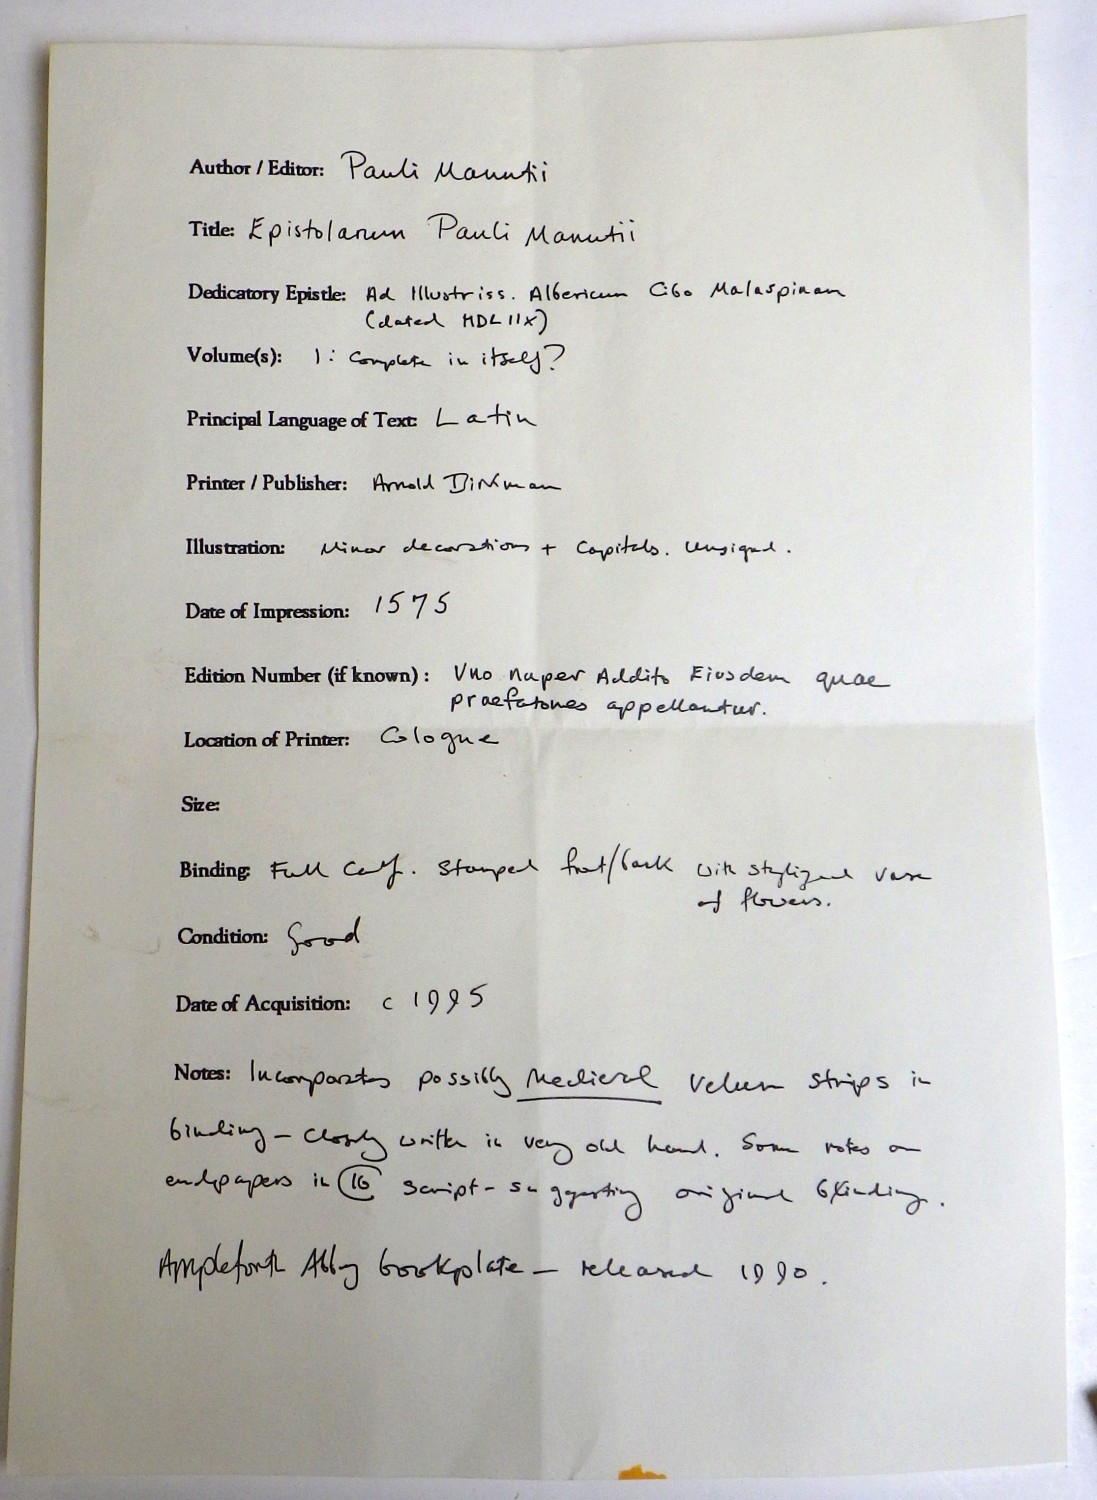 Author / Editor: Pauli Manutii
Title: Epistolarum Pauli Manutii
Dedicatory Epistle: Ad Illustriss. Albericum Cibo Malaspinam
(dated MDLIIX)
Volume(s): 1: Complete in itself?
Principal Language of Text: Latin
Printer / Publisher: Arnold Birkman
Illustration: Minor decorations + Capitals. Unsigned.
Date of Impression: 1575
Edition Number (if known) : Vno nuper Addito Eiusdem quae
praefationes appellantur.
Location of Printer: Cologne
Size:
Binding: Full Calf. Stamped front/back with stylized vase
of flowers.
Condition: Good
Date of Acquisition: c 1995
Notes: Incorporates possibly Medieval velum strips in
binding – closely written in very old hand. Some notes on
endpapers in 16 script – suggesting original binding.
Ampleforth Abbey bookplate – released 1990.